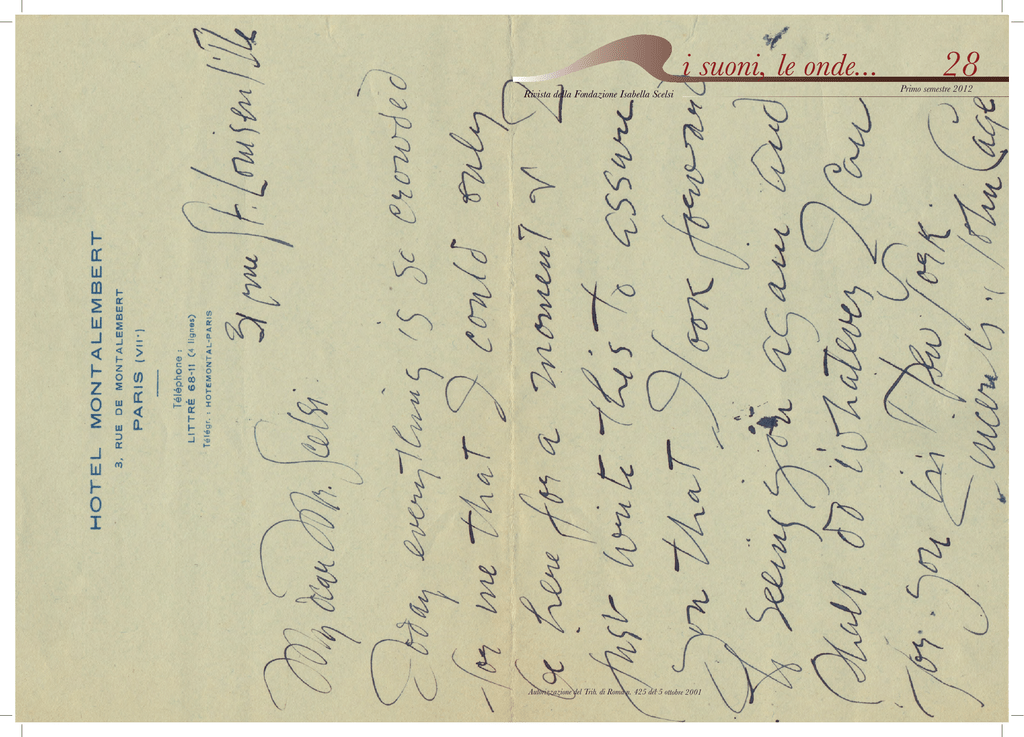 i suoni, le onde... 28
Rivista della Fondazione Isabella Scelsi Primo semestre 2012
HOTEL MONTALEMBERT
3, RUE DE MONTALEMBERT
PARIS (VIIe)
Téléphone :
LITTRÉ 68-11 (4 lignes)
Télégr. : HOTEMONTAL-PARIS
31 rue St. Louis en l'Ile
My dear Mr. Scelsi:
Today everything is so crowded
for me that I could only
be here for a moment & I
must write this to assure
you that I look forward
to seeing you again and
shall do whatever I can
for you in New York.
Sincerely, John Cage
Autorizzazione del Trib. di Roma n. 425 del 5 ottobre 2001